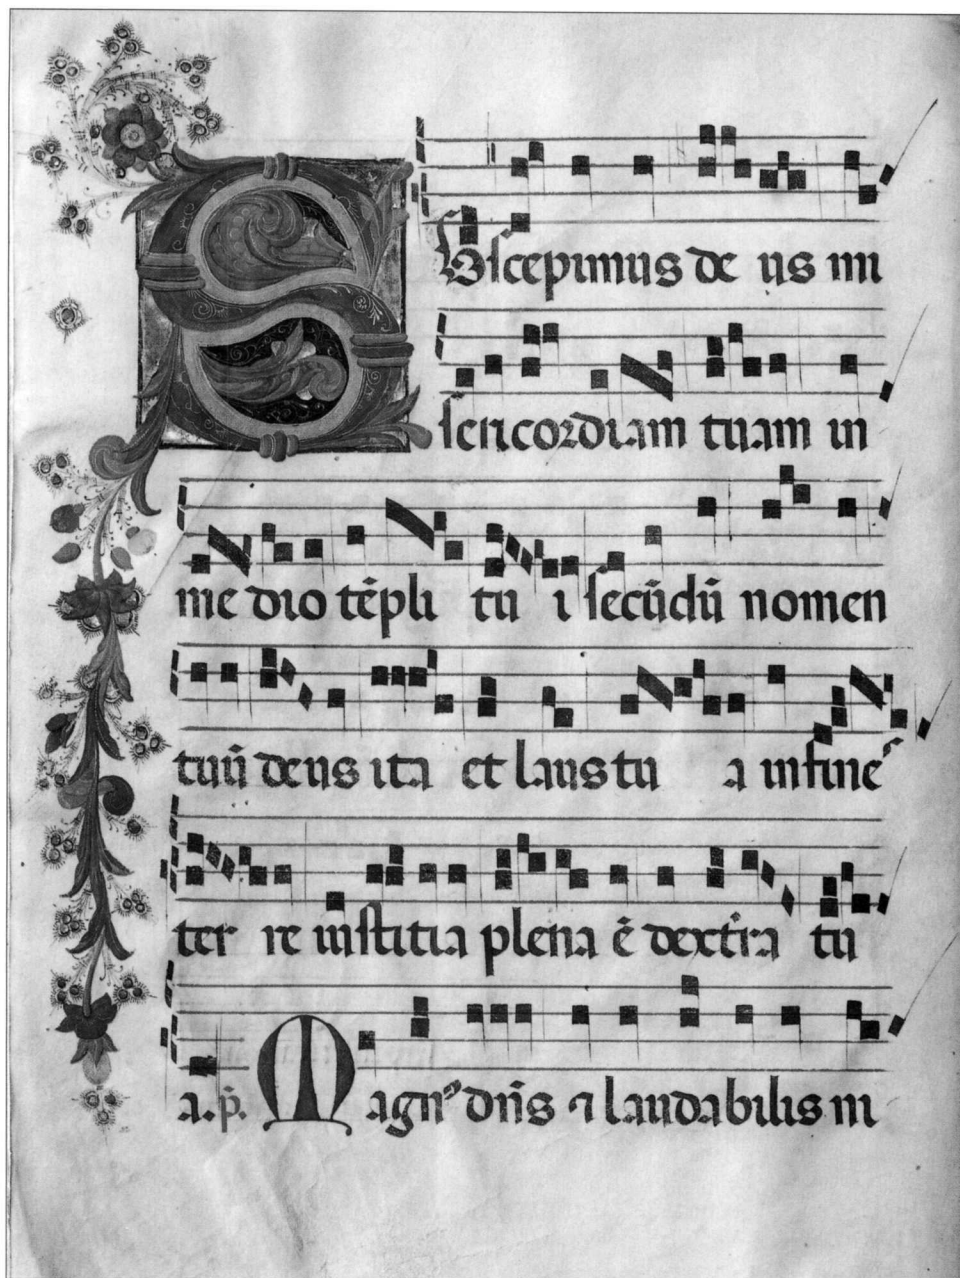 Suscepimus deus mi
sericordiam tuam in
medio te̅pli tui secu̅du̅ nomen
tuu̅ deus ita et laus tua in fine
ter re iustitia plena e̅ dext̓ra tu
a. p̅. Magn᷒ dn̅s ⁊ laudabilis ni